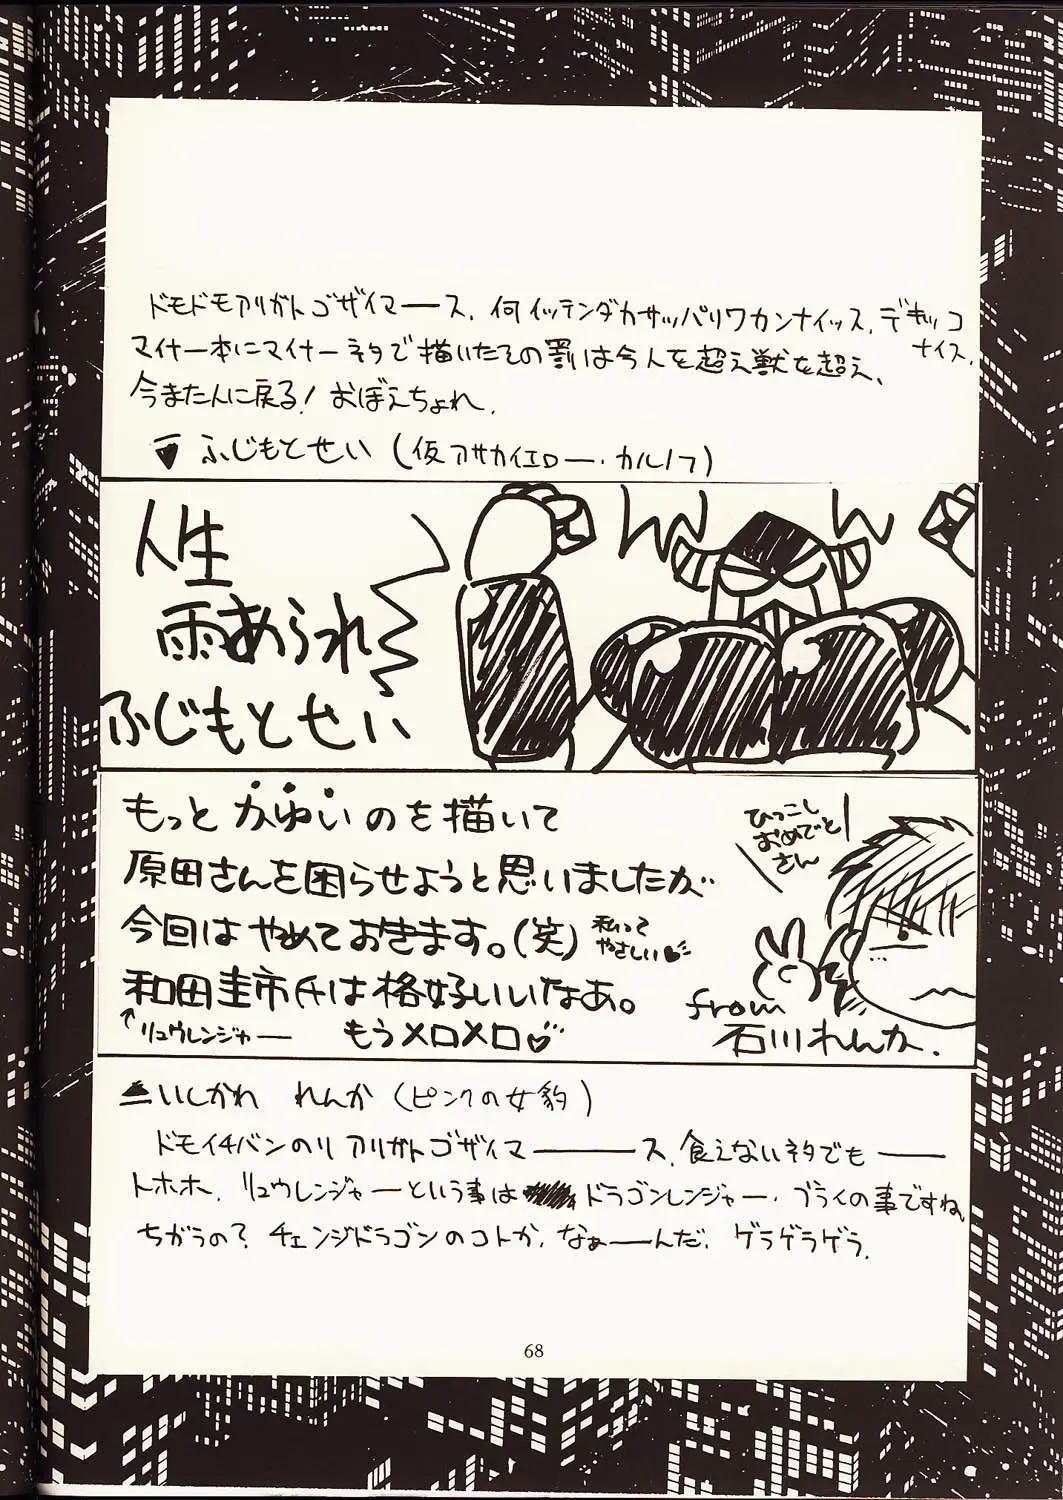 ドモドモアリガトゴザイマーース. 何イッテンダカサッパリワカンナイッス. デキッコ
ナイス.
マイナー本にマイナーネタで描いたその罰は今人を超え獣を超え、
今また人に戻る! おぼえちょれ.
ふじもとせい (仮アサカイエロー・カルノフ)
人生
雨あられ
ふじもとせい
もっとかゆいのを描いて
原田さんを困らせようと思いましたが
今回はやめておきます。(笑) 私って
やさしい
和田圭市氏は格好いいなあ。
↑リュウレンジャー もうメロメロ♡
ひっこし
おめでと
さん
from
石川れんか.
いしかわ れんか (ピンクの女豹)
ドモイチバンのリアリガトゴザイマーーース. 食えないネタでもー
トホホ. リュウレンジャーという事は ドラゴンレンジャー・ブライの事ですね.
ちがうの? チェンジドラゴンのコトか. なぁーーんだ. ゲラゲラゲラ.
68